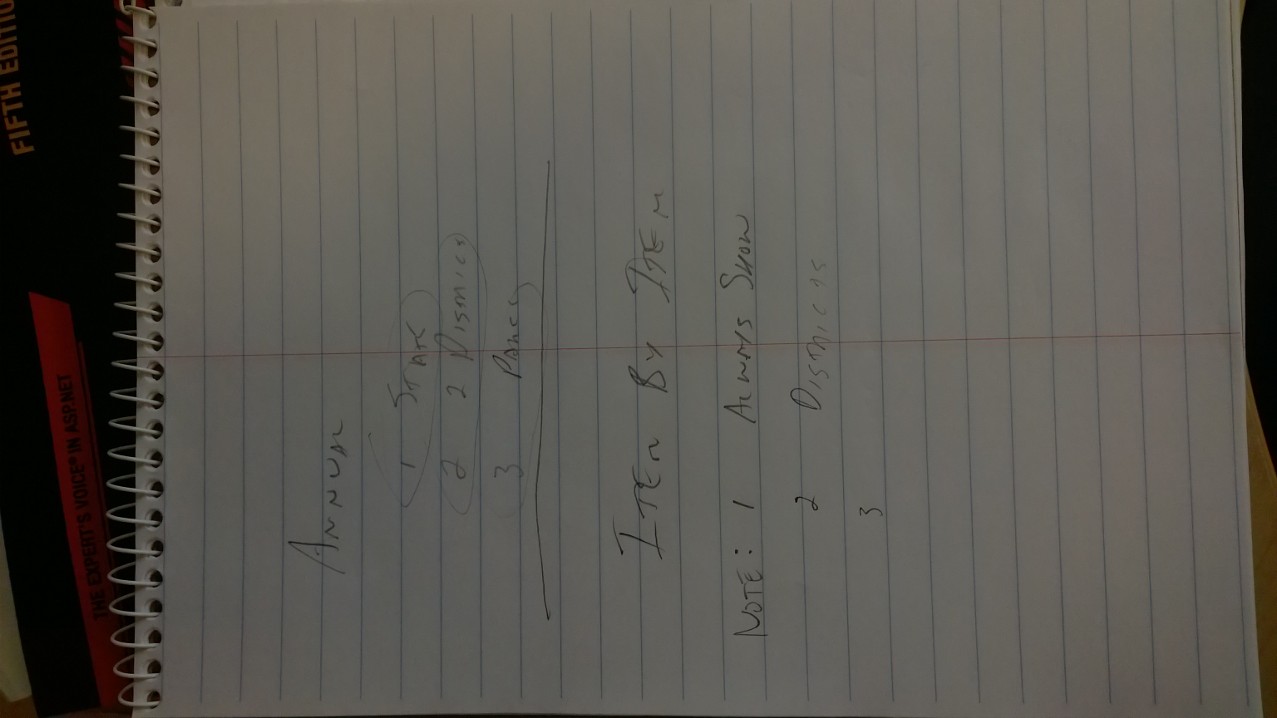 FIFTH EDITIO
THE EXPERT'S VOICE® IN ASP.NET
ANNUAL
1 STATE
2 2 DISTRICTS
3
ITEM BY ITEM
NOTE: 1 ALWAYS SHOW
2 DISTRICTS
3